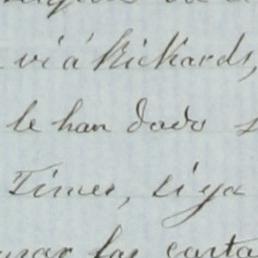 vi á Rickards,
le han dado
Times, si ya
las carta